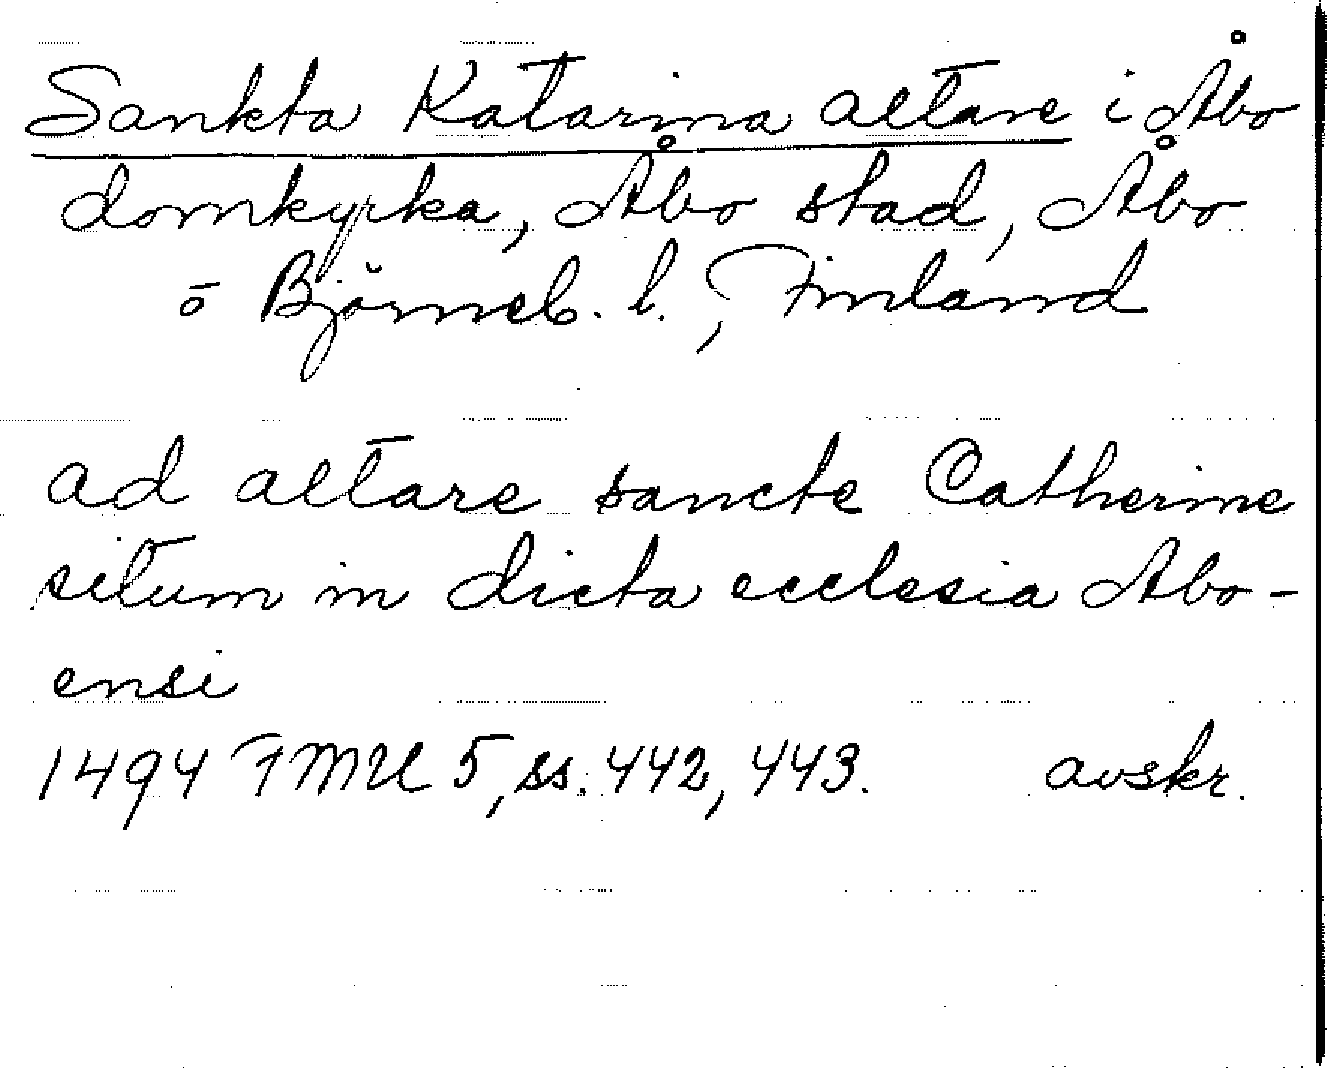 Sankta Katarina altare i Åbo
domkyrka, Åbo stad, Åbo
o Björneb. l., Finland
ad altare sancte Catherine
situm in dicta ecclesia Abo-
ensi
1494 FMU 5, ss. 442, 443. avskr.